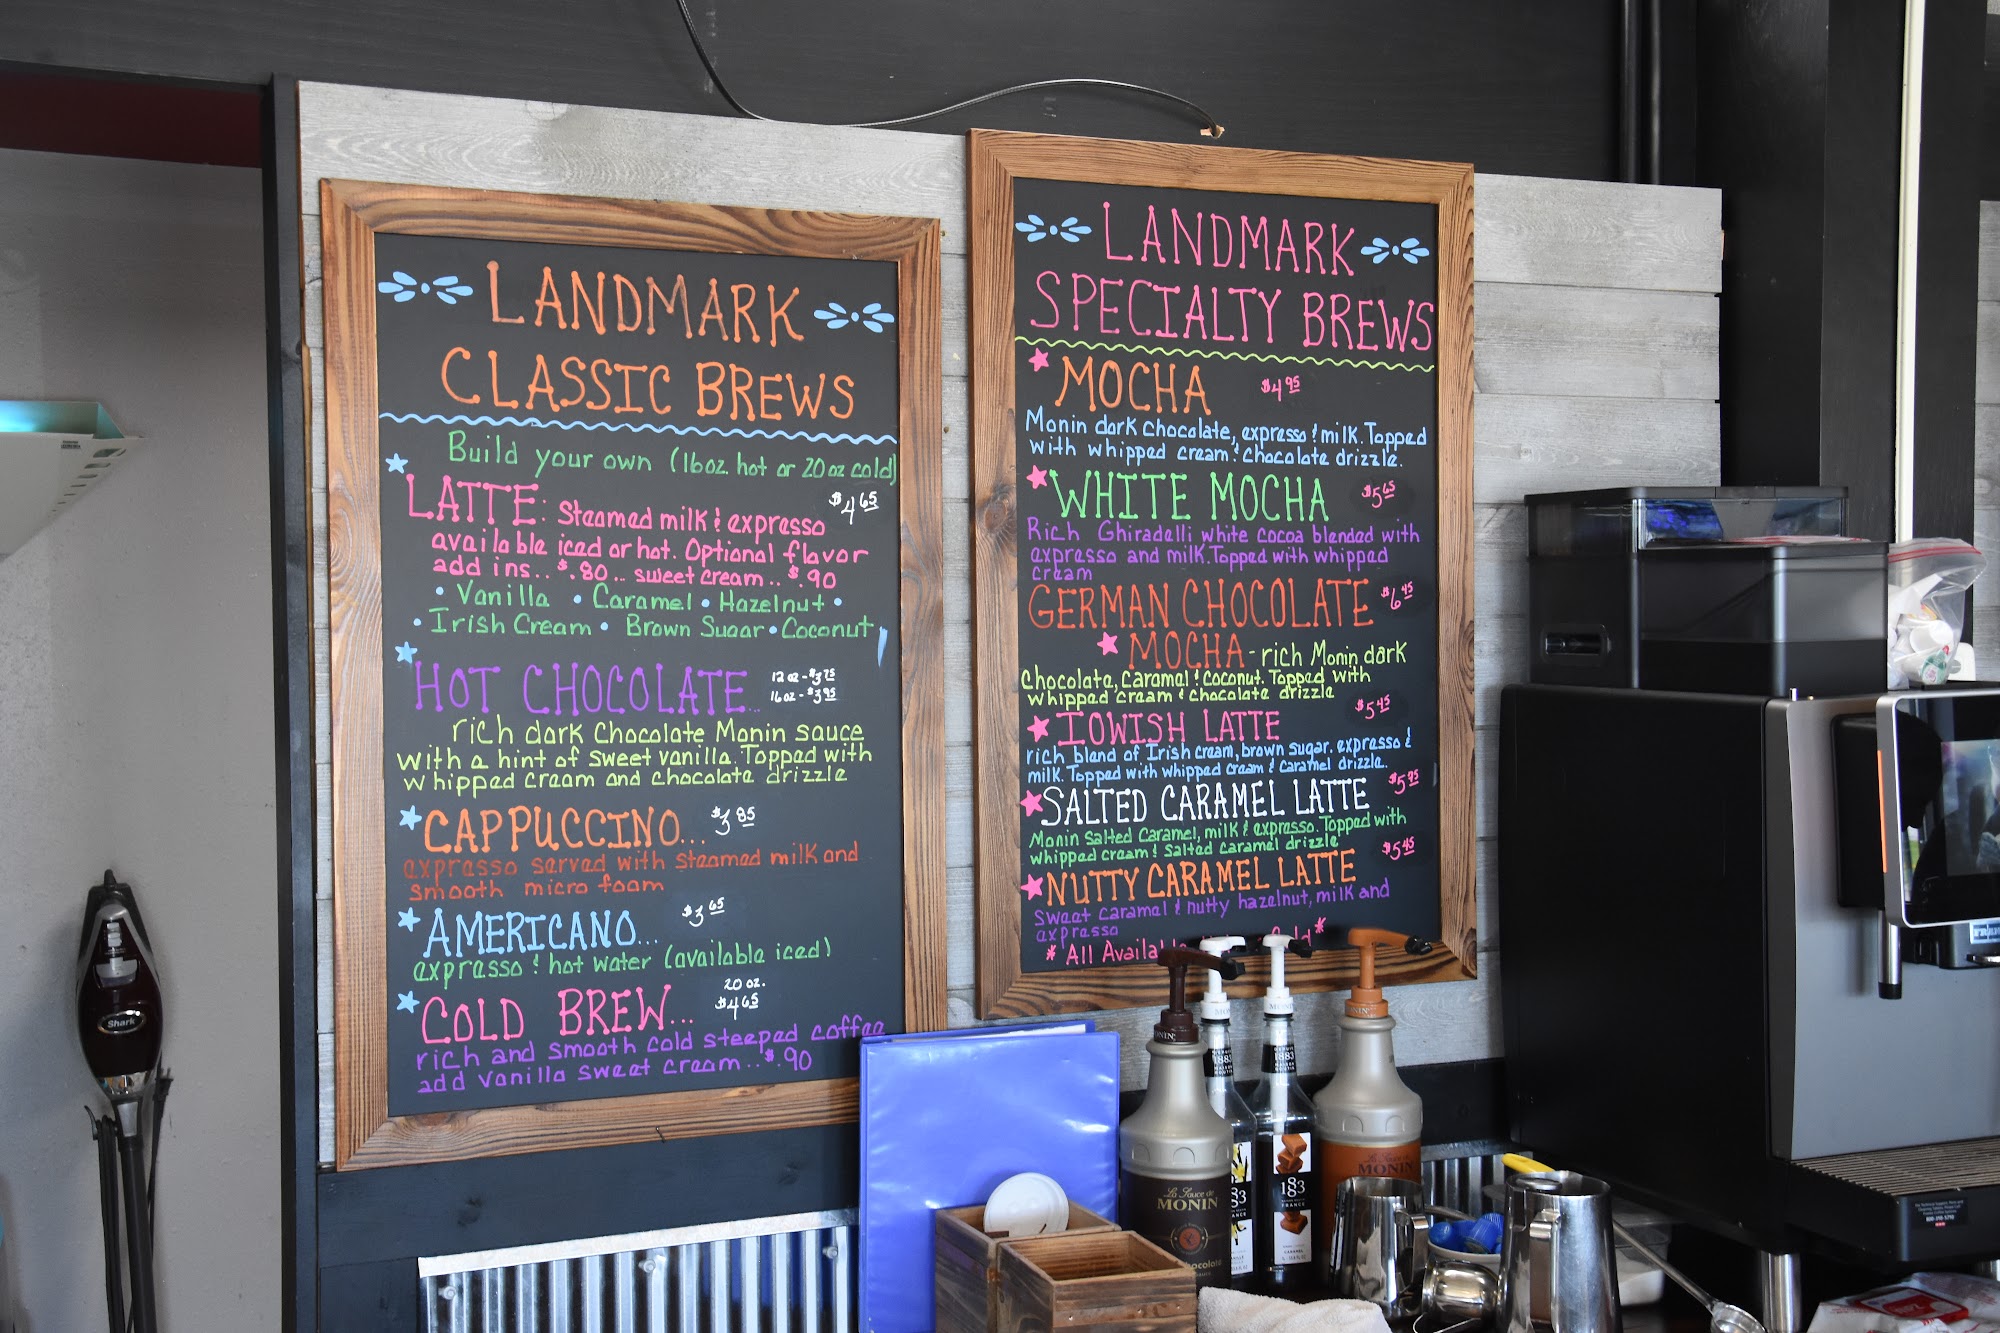 LANDMARK
CLASSIC BREWS
Build your own (16oz hot or 20oz cold)
LATTE: Steamed milk & expresso $4.65
available iced or hot. Optional flavor
add ins.. $.80 .. sweet cream .. $.90
• Vanilla • Caramel • Hazelnut •
• Irish Cream • Brown Sugar • Coconut
HOT CHOCOLATE... 12 oz - $3.75
16 oz - $3.95
rich dark Chocolate Monin sauce
with a hint of sweet vanilla. Topped with
whipped cream and chocolate drizzle
CAPPUCCINO... $3.85
expresso served with steamed milk and
smooth micro foam
AMERICANO... $3.65
expresso & hot water (available iced)
COLD BREW... 20 oz. $4.65
rich and smooth cold steeped coffee
add vanilla sweet cream .. $.90
LANDMARK
SPECIALTY BREWS
MOCHA $4.95
Monin dark chocolate, expresso & milk. Topped
with whipped cream & chocolate drizzle.
WHITE MOCHA $5.65
Rich Ghiradelli white cocoa blended with
expresso and milk. Topped with whipped
cream
GERMAN CHOCOLATE $6.45
MOCHA - rich Monin dark
Chocolate, Caramel & Coconut. Topped with
whipped cream & chocolate drizzle
IOWISH LATTE $5.45
rich blend of Irish cream, brown sugar, expresso &
milk. Topped with whipped cream & caramel drizzle.
SALTED CARAMEL LATTE $5.95
Monin salted Caramel, milk & expresso. Topped with
whipped cream & salted caramel drizzle
NUTTY CARAMEL LATTE $5.45
sweet caramel & nutty hazelnut, milk and
expresso
* All *
Shark
La Sauce de
MONIN
1883
FRANCE
CARAMEL
La Sauce de
MONIN